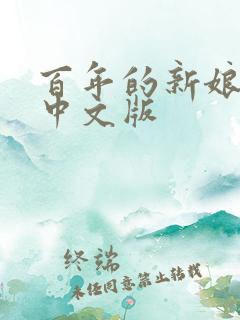 百年的新娘
中文版
终端
未经同意禁止转载